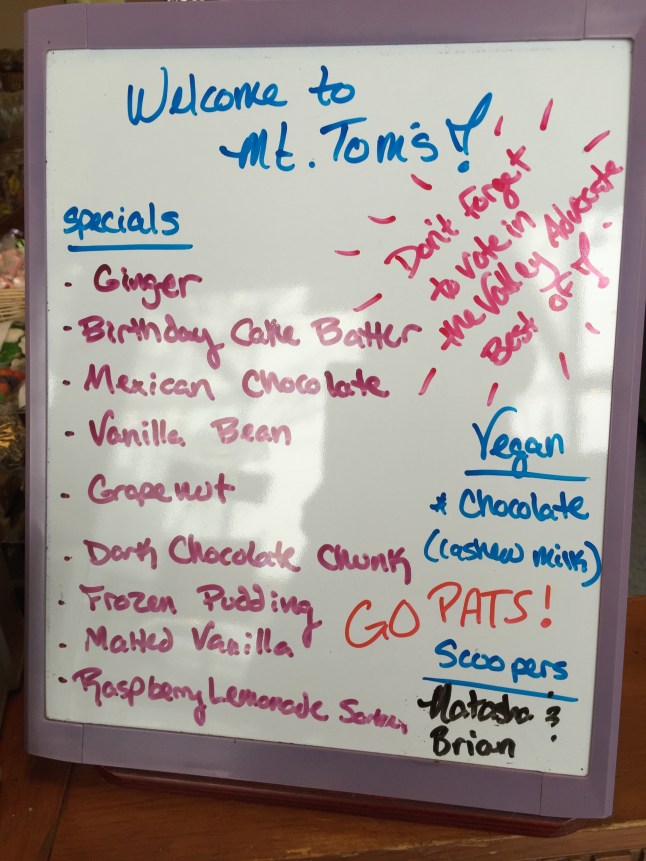 Welcome to
Mt. Tom's!
Don't forget
to vote in
the Valley Advocate
Best of!
specials
- Ginger
- Birthday Cake Batter
- Mexican Chocolate
- Vanilla Bean
- Grapenut
- Dark Chocolate Chunk
- Frozen Pudding
- Malted Vanilla
- Raspberry Lemonade Sorbet
Vegan
* Chocolate
(cashew milk)
GO PATS!
Scoopers
Natasha &
Brian